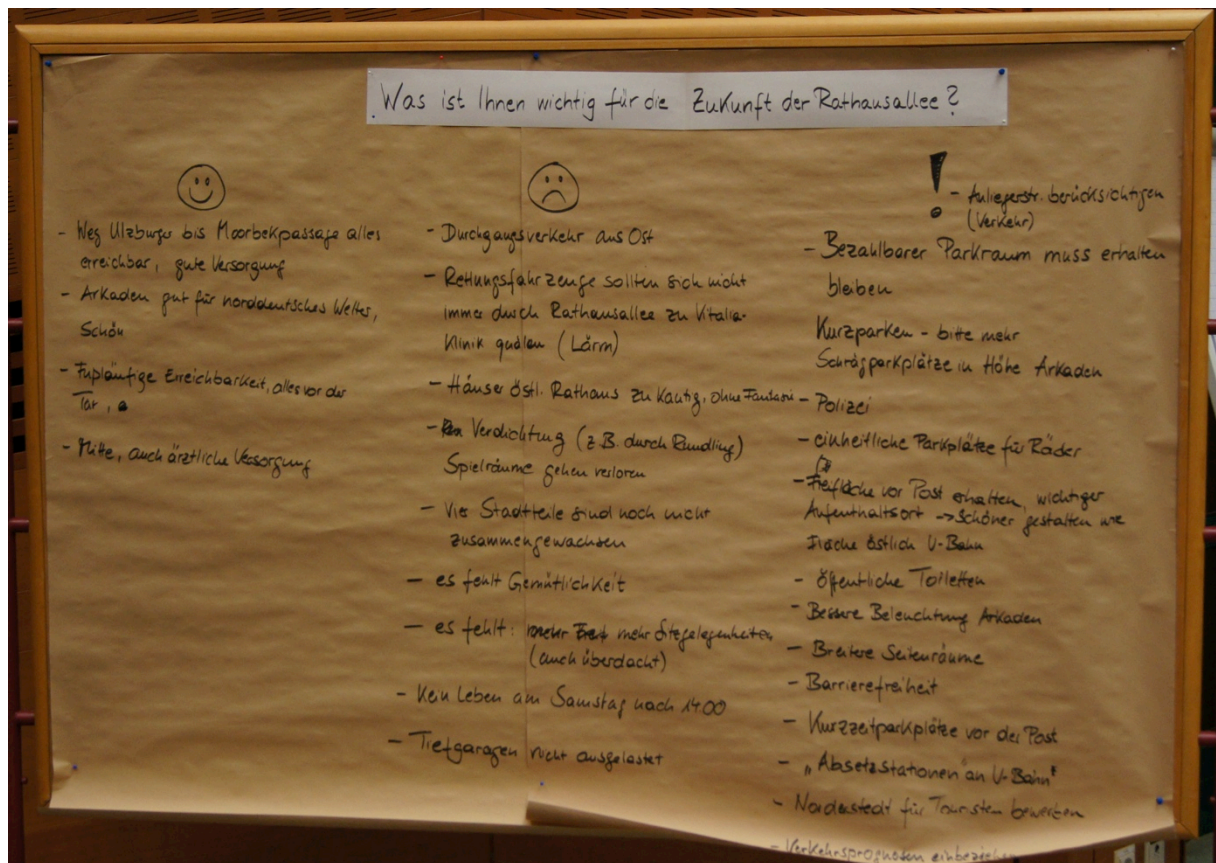 Was ist Ihnen wichtig für die Zukunft der Rathausallee?
- Weg Ulzburger bis Moorbekpassage alles
erreichbar, gute Versorgung
- Arkaden gut für norddeutsches Wetter,
Schön
- Fußläufige Erreichbarkeit, alles vor der
Tür,
- Mitte, auch ärztliche Versorgung
- Durchgangsverkehr aus Ost
- Rettungsfahrzeuge sollten sich nicht
immer durch Rathausallee zu Vitalia-
Klinik quälen (Lärm)
- Häuser östl. Rathaus zu kantig, ohne Fantasie
- Verdichtung (z.B. durch Rundling)
Spielräume gehen verloren
- Vier Stadtteile sind noch nicht
zusammengewachsen
- es fehlt Gemütlichkeit
- es fehlt: mehr Sitzgelegenheiten
(auch überdacht)
- Kein Leben am Samstag nach 14.00
- Tiefgaragen nicht ausgelastet
! - Anliegerstr. berücksichtigen
(Verkehr)
- Bezahlbarer Parkraum muss erhalten
bleiben
Kurzparken - bitte mehr
Schrägparkplätze in Höhe Arkaden
- Polizei
- einheitliche Parkplätze für Räder
- Freifläche vor Post erhalten, wichtiger
Aufenthaltsort -> Schöner gestalten wie
Fläche östlich U-Bahn
- öffentliche Toiletten
- Bessere Beleuchtung Arkaden
- Breitere Seitenräume
- Barrierefreiheit
- Kurzzeitparkplätze vor der Post
- „Absetzstationen an U-Bahn"
- Norderstedt für Touristen bewerben
- Verkehrsprognosen einbeziehen